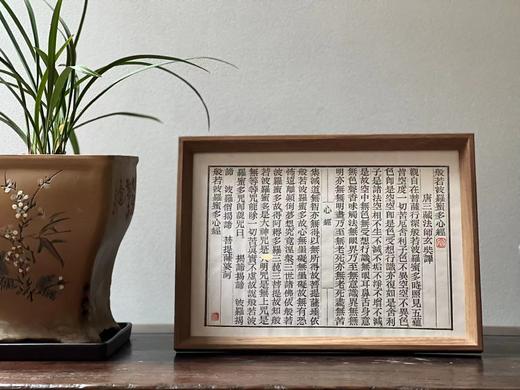 般若波羅蜜多心經
唐三藏法師玄奘譯
觀自在菩薩行深般若波羅蜜多時照見五蘊
皆空度一切苦厄舍利子色不異空空不異色
色即是空空即是色受想行識亦復如是舍利
子是諸法空相不生不滅不垢不淨不增不減
是故空中無色無受想行識無眼耳鼻舌身意
無色聲香味觸法無眼界乃至無意識界無無
明亦無無明盡乃至無老死亦無老死盡無苦
心經
集滅道無智亦無得以無所得故菩提薩埵依
般若波羅蜜多故心無罣礙無罣礙故無有恐
怖遠離顛倒夢想究竟涅槃三世諸佛依般若
波羅蜜多故得阿耨多羅三藐三菩提故知般
若波羅蜜多是大神咒是大明咒是無上咒是
無等等咒能除一切苦真實不虛故說般若波
羅蜜多咒即說咒曰 揭諦揭諦 波羅揭
諦 波羅僧揭諦 菩提薩婆訶
般若波羅蜜多心經